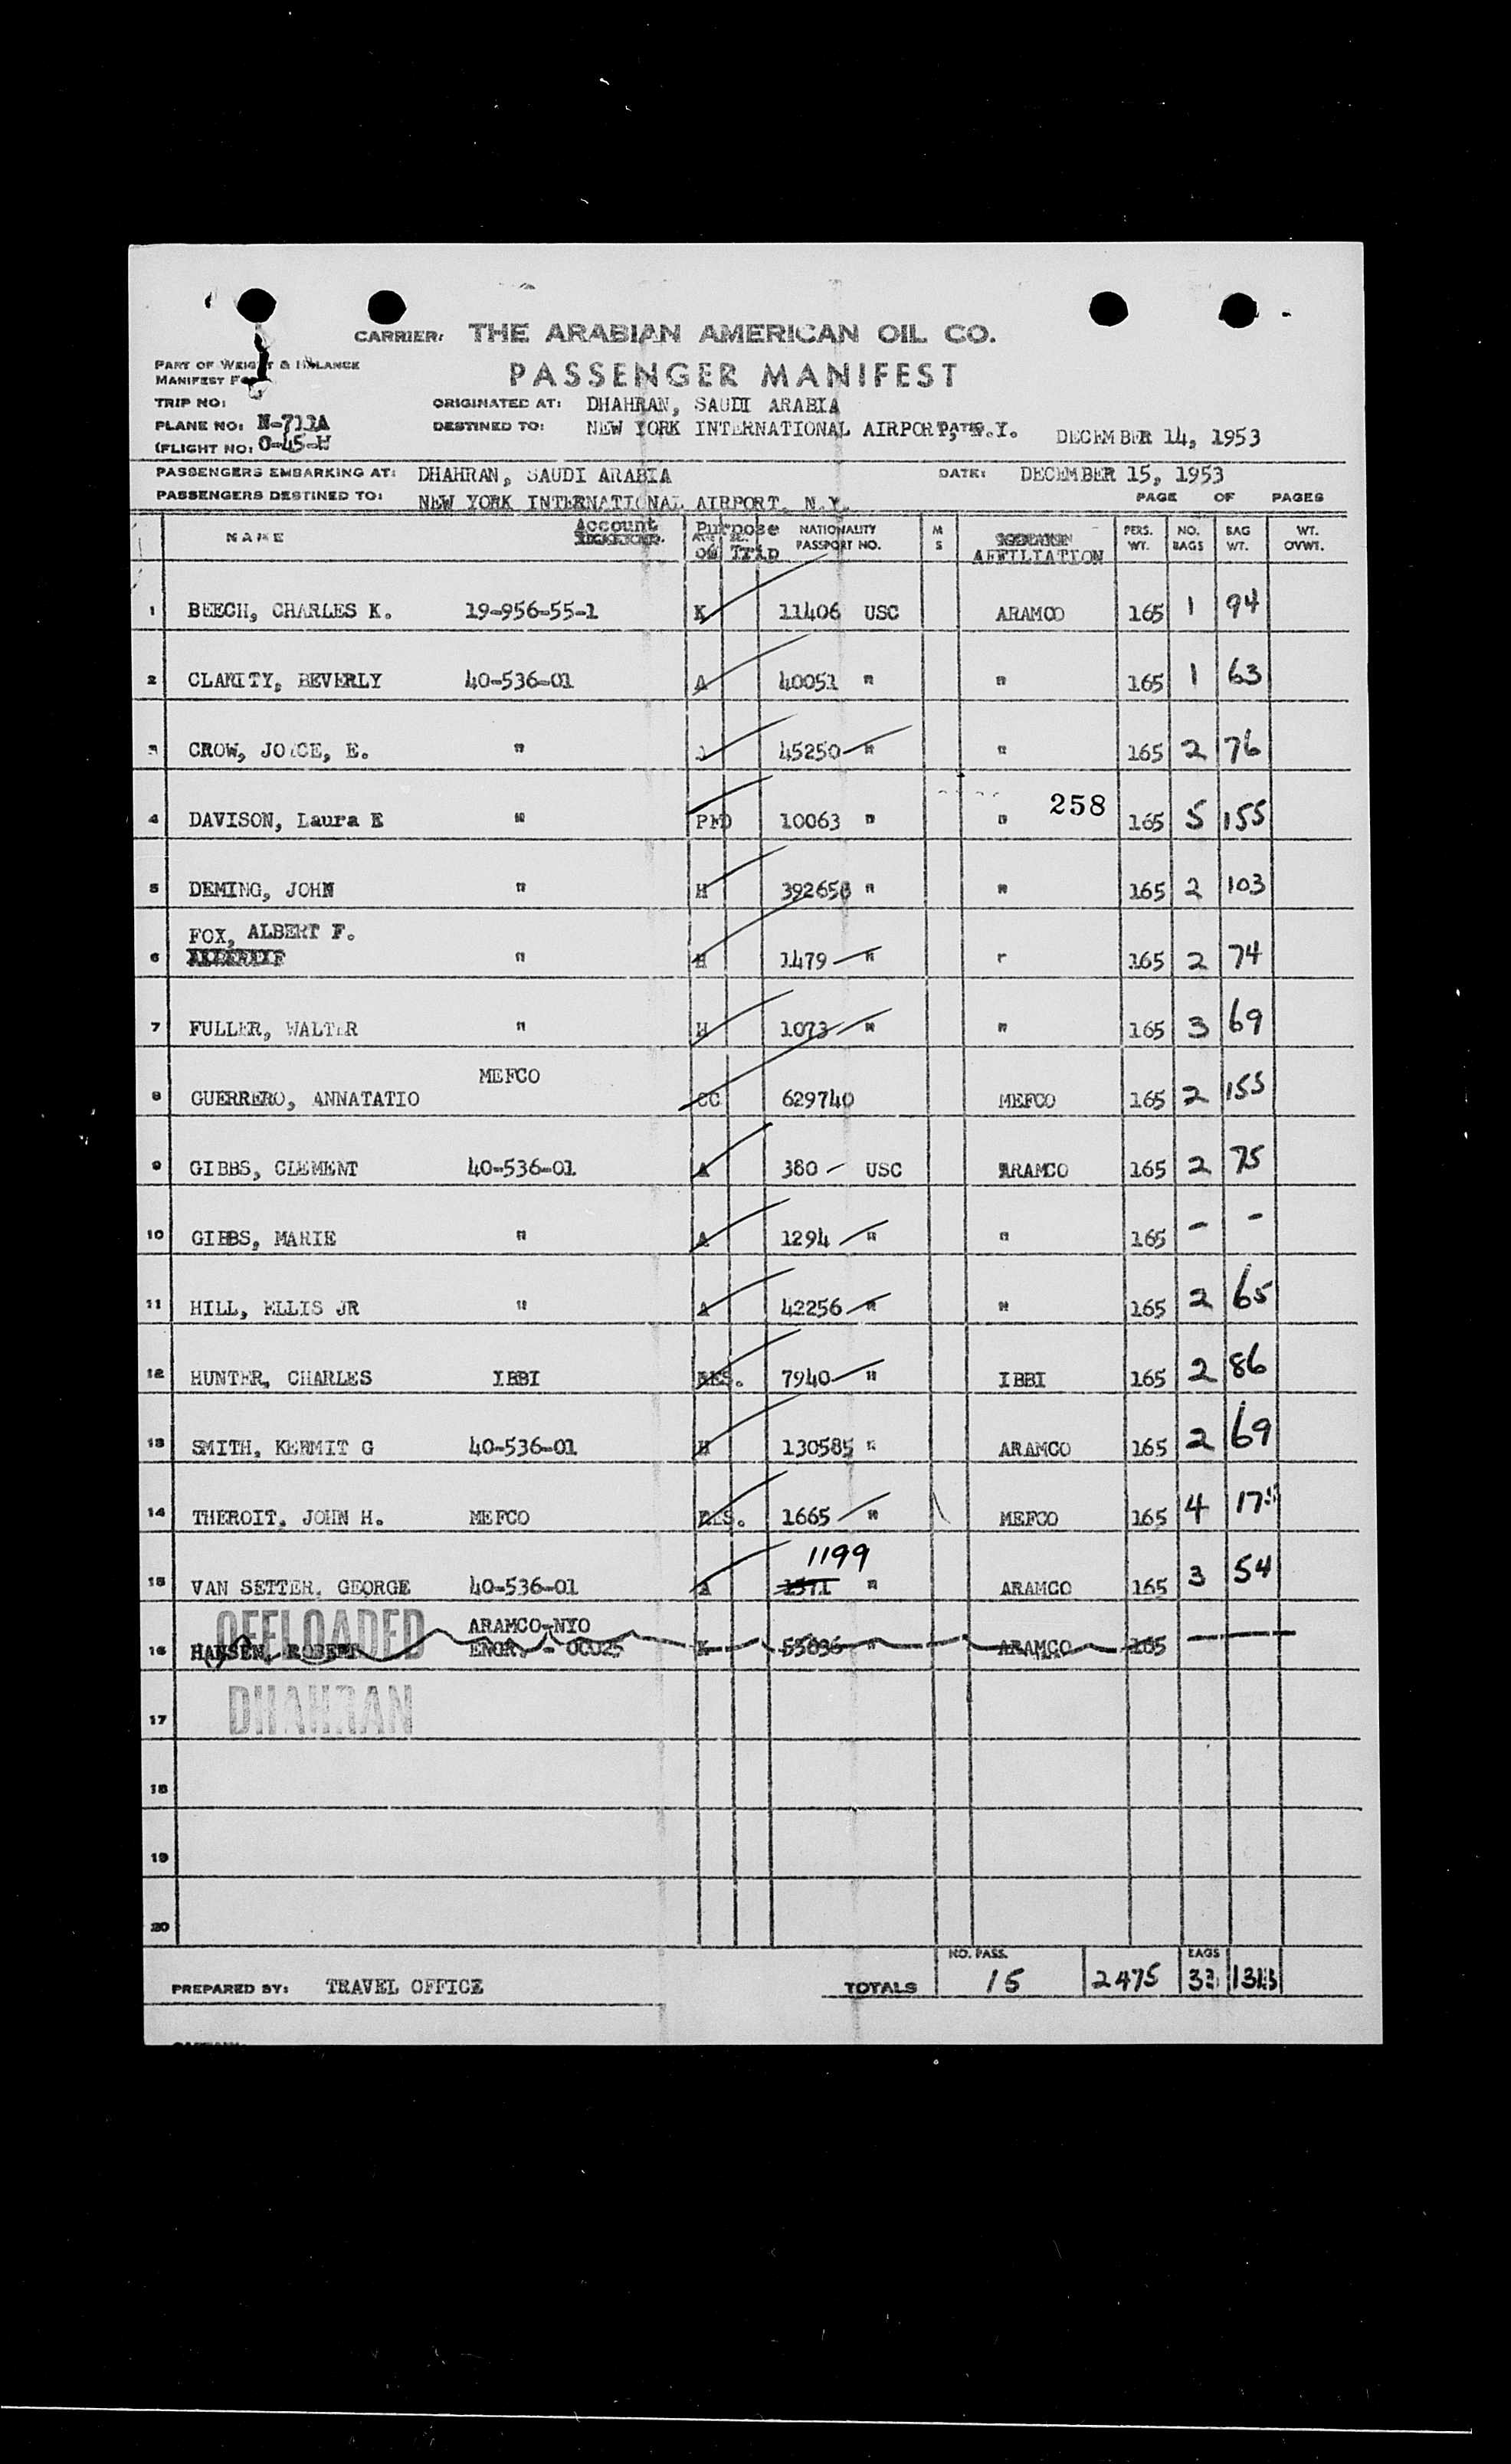 CARRIER: THE ARABIAN AMERICAN OIL CO.
PART OF WEIGHT & BALANCE
MANIFEST
PASSENGER MANIFEST
TRIP NO:
ORIGINATED AT: DHAHRAN, SAUDI ARABIA
PLANE NO:
DESTINED TO: NEW YORK INTERNATIONAL AIRPORT, N.Y. DECEMBER 14, 1953
(FLIGHT NO: O-45-H
PASSENGERS EMBARKING AT: DHAHRAN, SAUDI ARABIA DATE: DECEMBER 15, 1953
PASSENGERS DESTINED TO: NEW YORK INTERNATIONAL AIRPORT, N.Y. PAGE OF PAGES
NAME Account Purpose of Trip NATIONALITY PASSPORT NO. M S AFFILIATION PERS. WT. NO. BAGS BAG WT. WT. OVWT.
1 BEECH, CHARLES K. 19-956-55-1 K 11406 USC ARAMCO 165 1 94
2 CLARITY, BEVERLY 40-536-01 A 40051 " " 165 1 63
3 CROW, JOYCE, E. " 45250 " " 165 2 76
258
4 DAVISON, Laura E " PMD 10063 " " 165 5 155
5 DEMING, JOHN " H 392658 " " 165 2 103
FOX, ALBERT F.
6 " H 1479 " " 165 2 74
7 FULLER, WALTER " H 1073 " " 165 3 69
MEFCO
8 GUERRERO, ANNATATIO CC 629740 MEFCO 165 2 155
9 GIBBS, CLEMENT 40-536-01 A 380 USC ARAMCO 165 2 75
10 GIBBS, MARIE " A 1294 " " 165 - -
11 HILL, ELLIS JR " A 42256 " " 165 2 65
12 HUNTER, CHARLES IBBI RES. 7940 " IBBI 165 2 86
13 SMITH, KERMIT G 40-536-01 H 130585 " ARAMCO 165 2 69
14 THEROIT, JOHN H. MEFCO RES. 1665 " MEFCO 165 4
1199
15 VAN SETTER, GEORGE 40-536-01 A 1571 " ARAMCO 165 3 54
OFFLOADED ARAMCO-NYO
16 HANSEN, ROBERT ENGR. - 00025 K 53836 " ARAMCO 165
DHAHRAN
17
18
19
20
NO. PASS. BAGS
PREPARED BY: TRAVEL OFFICE TOTALS 15 2475 33